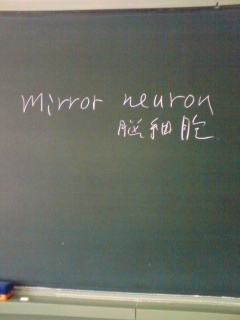 mirror neuron
脳細胞